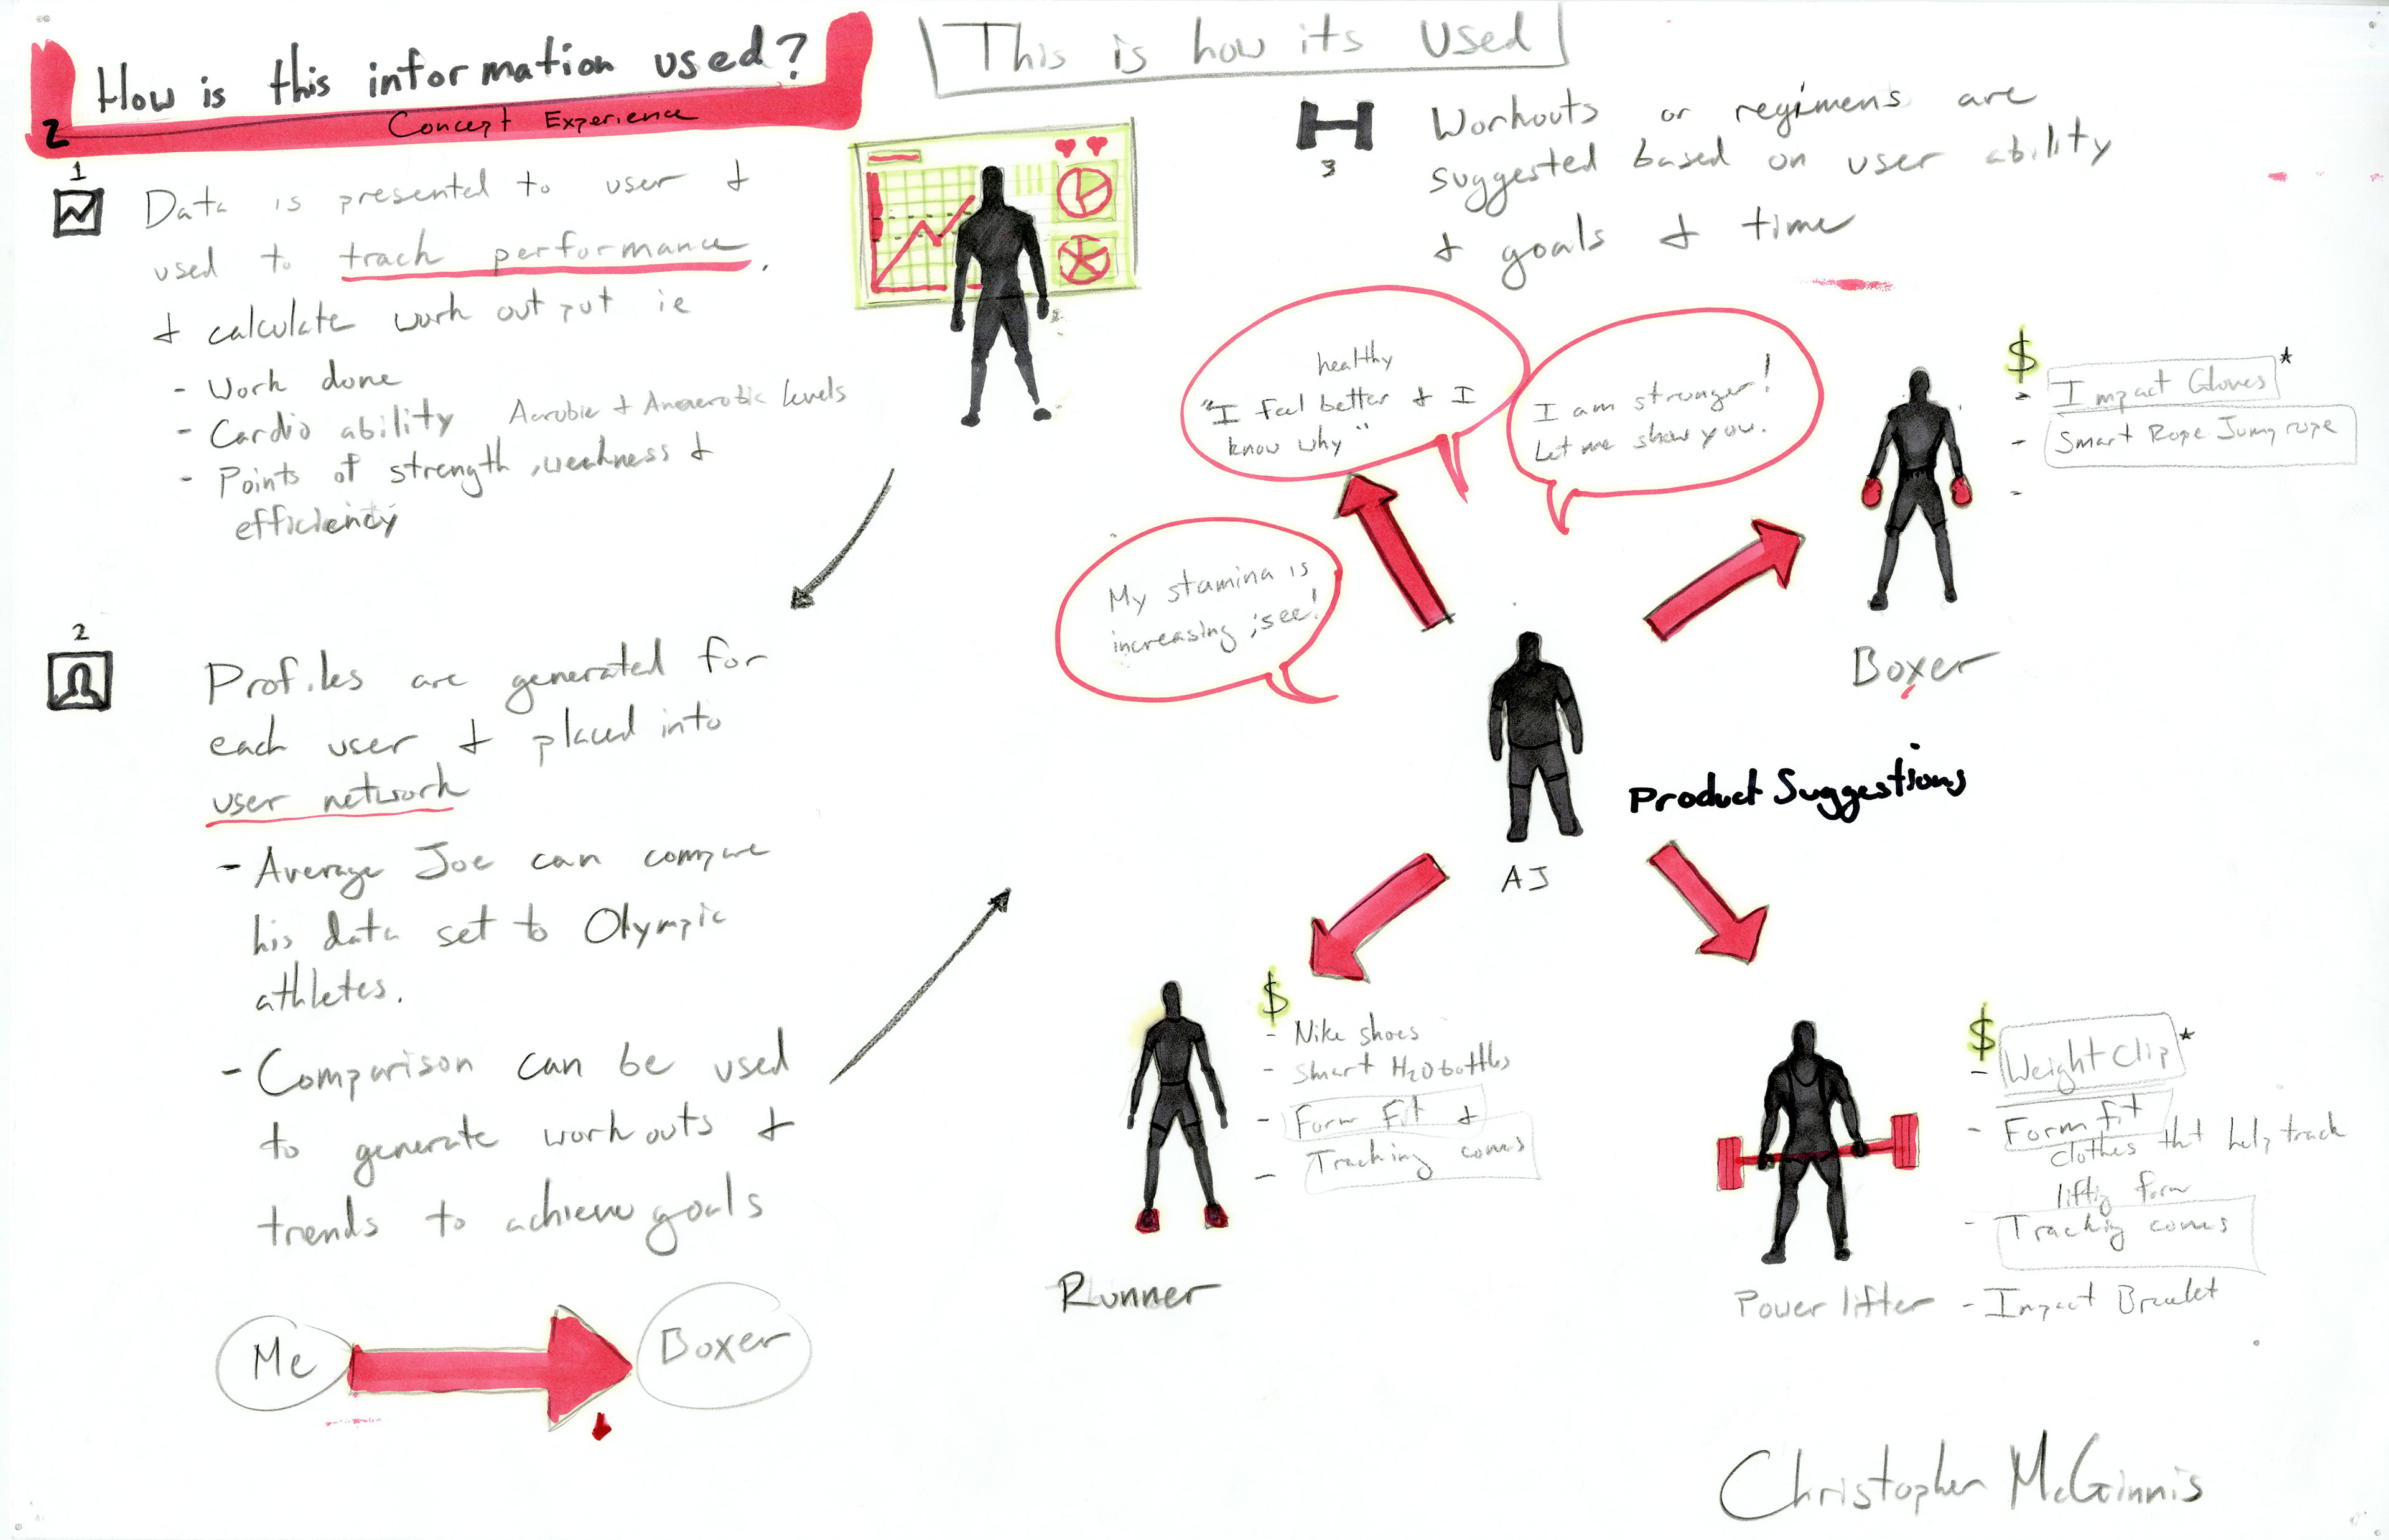 How is this information used?
2
Concept Experience
This is how its Used
1
Data is presented to user &
used to track performance.
& calculate work output ie
- Work done
- Cardio ability Aerobic & Anaerobic levels
- Points of strength, weakness &
efficiency
2
Profiles are generated for
each user & placed into
user network
- Average Joe can compare
his data set to Olympic
athletes.
- Comparison can be used
to generate workouts &
trends to achieve goals
Me
Boxer
3
Workouts or regimens are
suggested based on user ability
& goals & time
healthy
"I feel better & I
know why"
I am stronger!
Let me show you.
My stamina is
increasing ;see!
$
- Impact Gloves *
- Smart Rope Jump rope
-
Boxer
AJ
Product Suggestions
$
- Nike shoes
- Smart H2O bottles
- Form Fit &
- Tracking comes
Runner
$
- Weight Clip *
- Form fit
clothes that help track
liftig form
- Tracking comes
- Impact Bracelet
Power lifter
Christopher McGinnis